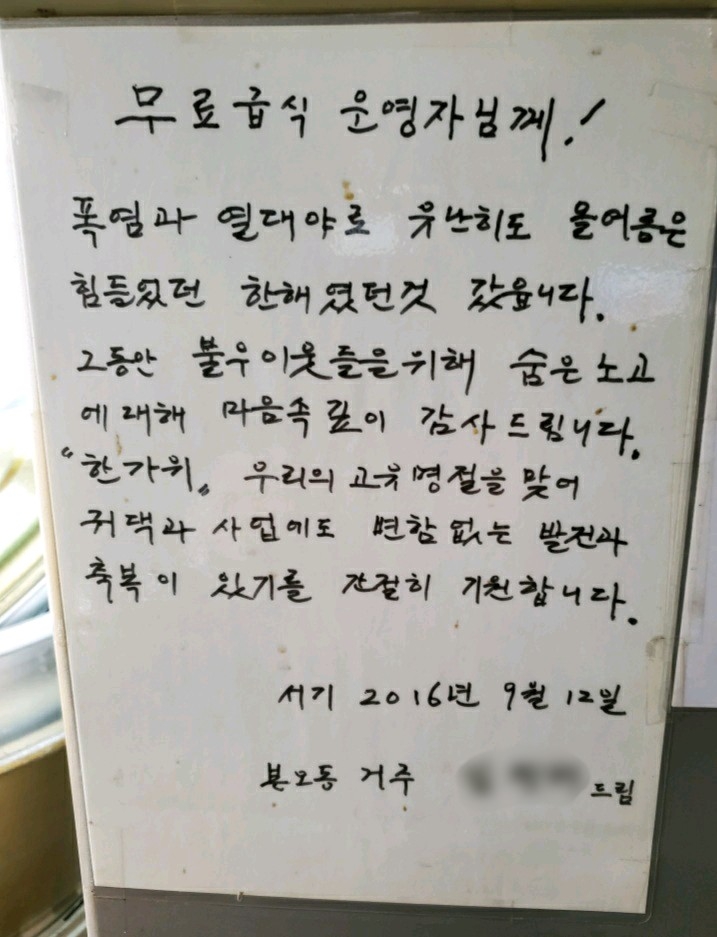 무료급식 운영자님께!
폭염과 열대야로 유난히도 올여름은
힘들었던 한해였던것 같읍니다.
그동안 불우이웃들을위해 숨은노고
에대해 마음속 깊이 감사드립니다.
"한가위" 우리의 고유명절을 맞어
귀댁과 사업에도 변함없는 발전과
축복이 있기를 간절히 기원합니다.
서기 2016년 9월 12일
본오동 거주 드림